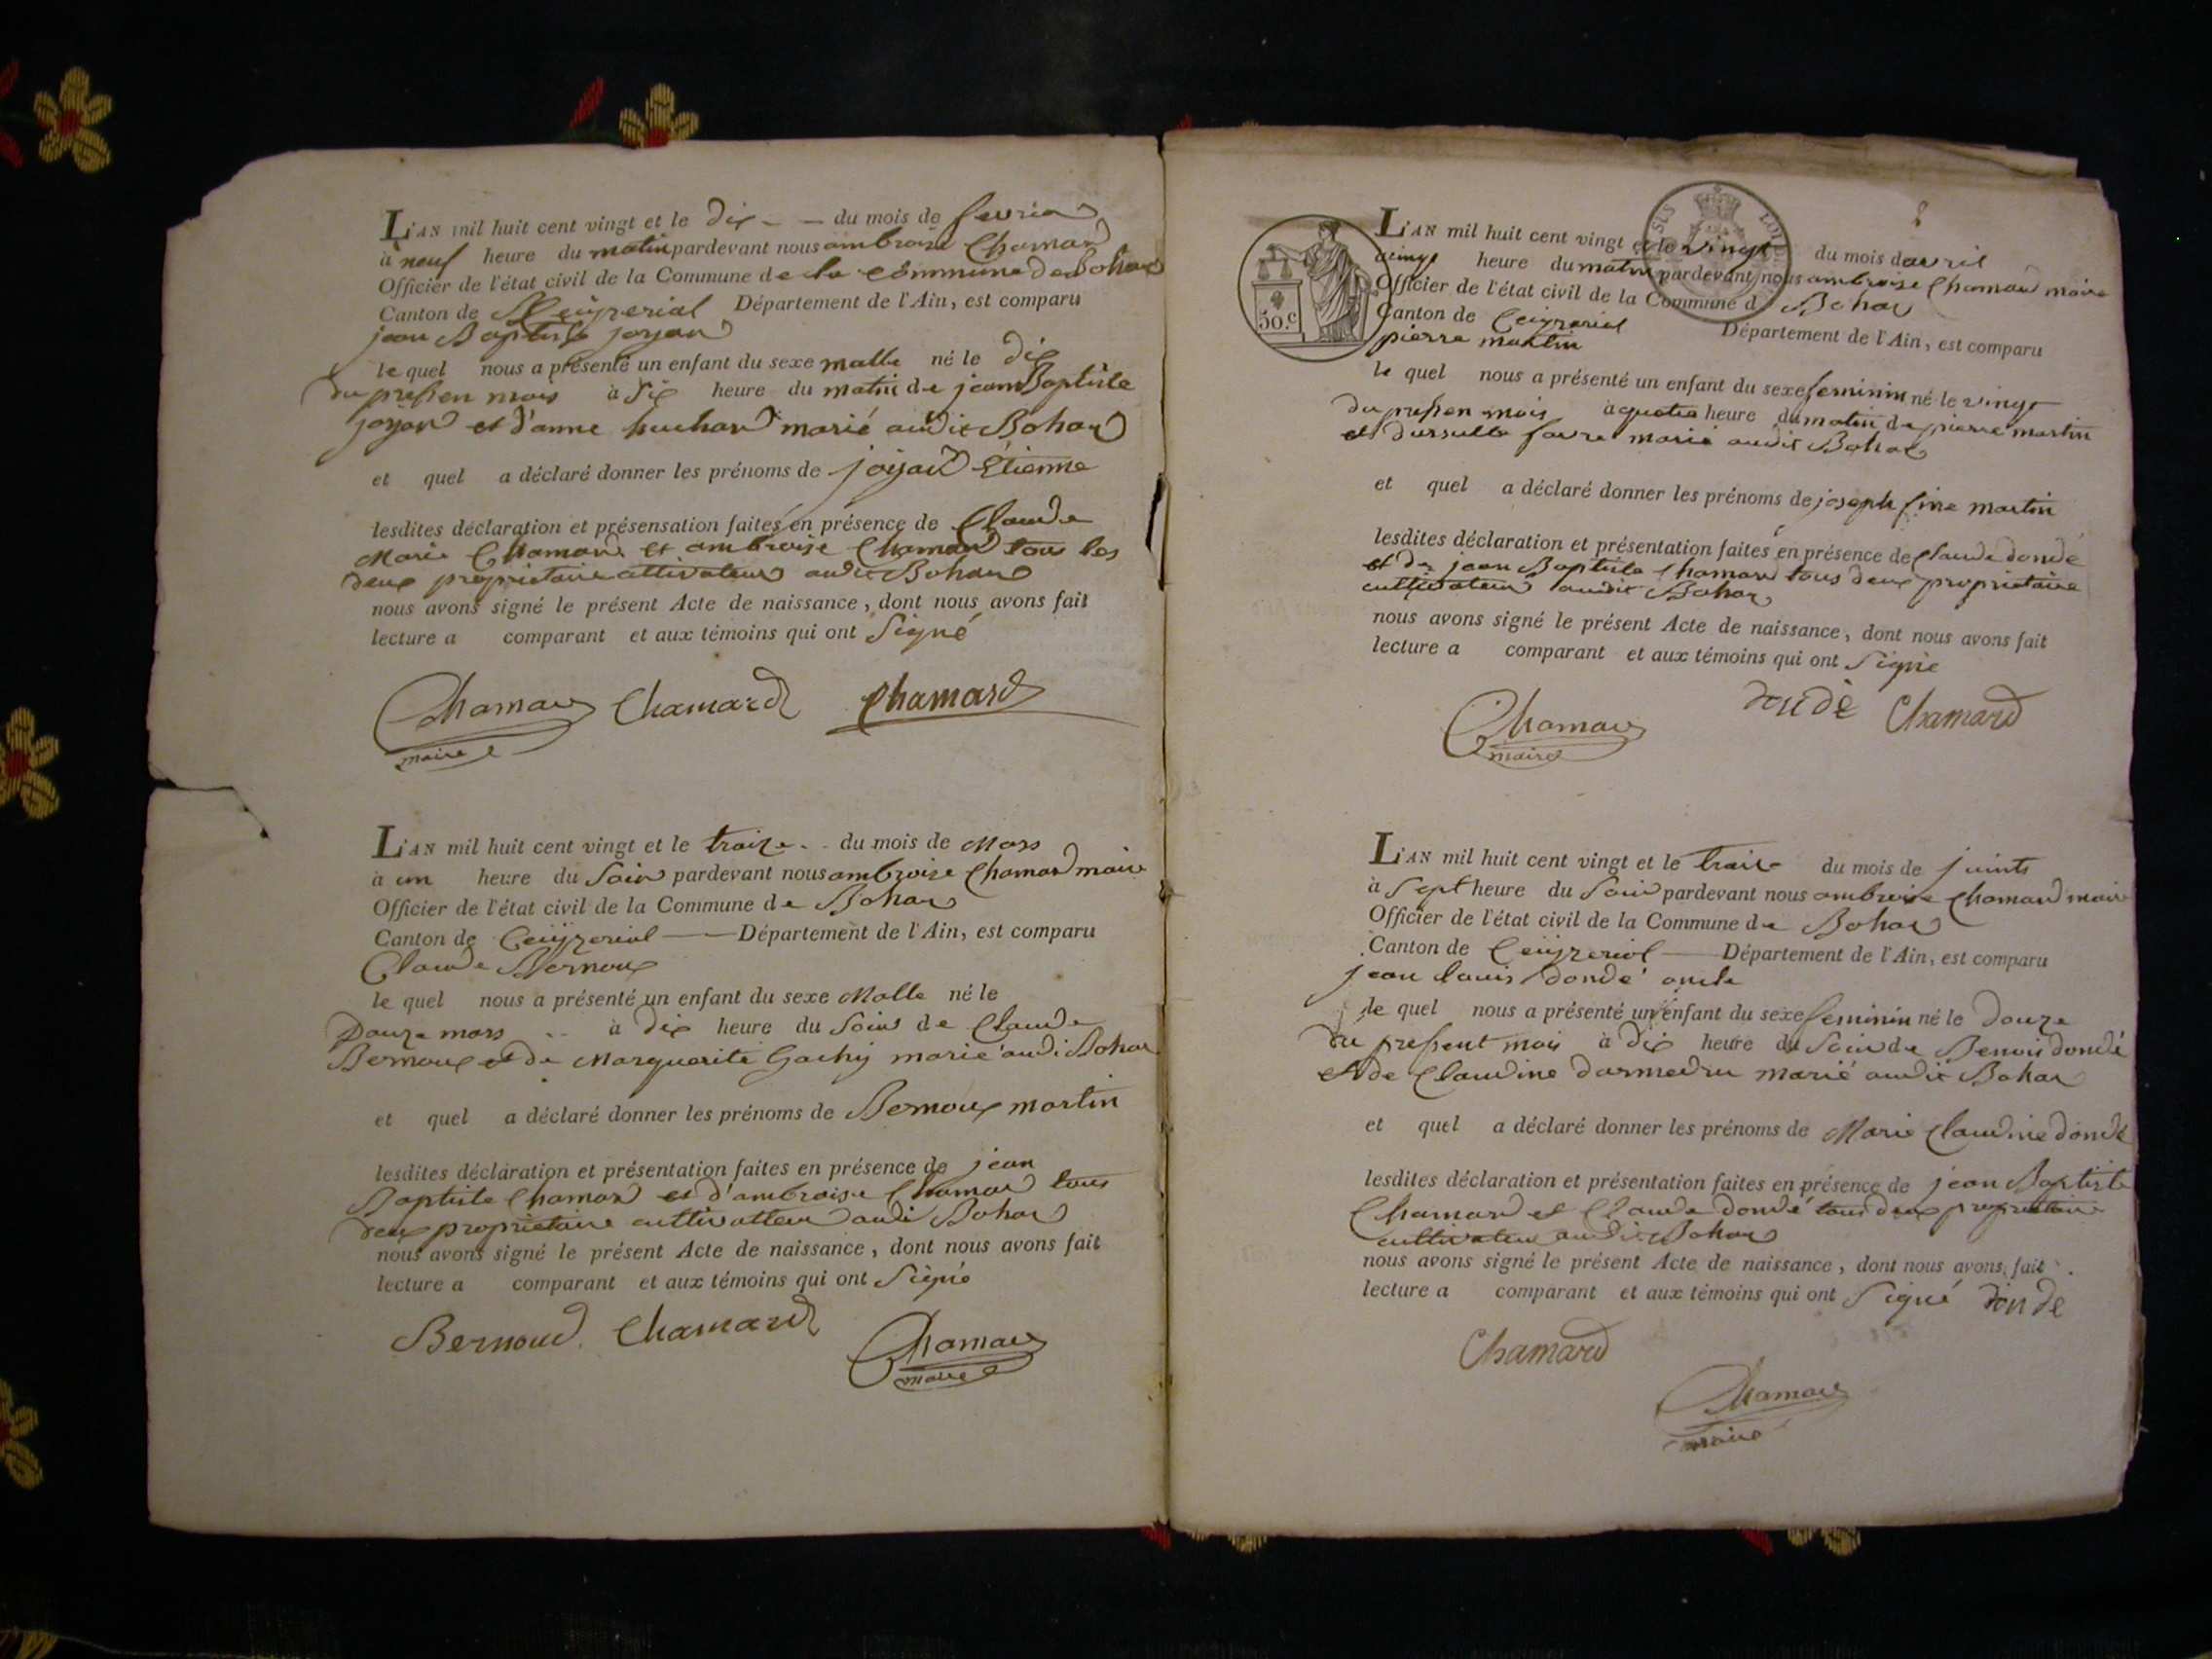 L'AN mil huit cent vingt et le dix - - du mois de fevrier
à neuf heure du matin pardevant nous ambroise Chamard
Officier de l'état civil de la Commune de la commune de Bohas
Canton de Ceiyzerial Département de l'Ain, est comparu
jean Baptiste joyard
le quel nous a présenté un enfant du sexe malle né le dix
du presen mois à six heure du matin de jean Baptiste
joyard et d'anne huchard marié audit Bohas
et quel a déclaré donner les prénoms de joyard Etienne
lesdites déclaration et présensation faites en présence de Claude
Marie Chamard et ambroise Chamard tous les
deux proprietaire cultivateur audit Bohas
nous avons signé le présent Acte de naissance, dont nous avons fait
lecture a comparant et aux témoins qui ont Signé
Chamard Chamard Chamard
maire
L'AN mil huit cent vingt et le traize - - du mois de Mars
à un heure du Soir pardevant nous ambroise Chamard maire
Officier de l'état civil de la Commune de Bohas
Canton de Ceiyzerial Département de l'Ain, est comparu
Claude Bernoux
le quel nous a présenté un enfant du sexe Malle né le
Douze mars - - à dix heure du Soir de Claude
Bernoux et de Marguerite Gachy marié audi Bohas
et quel a déclaré donner les prénoms de Bernoux martin
lesdites déclaration et présentation faites en présence de jean
Baptiste Chamard et d'ambroise Chamard tous
deux proprietaire cultivatteur audi Bohas
nous avons signé le présent Acte de naissance, dont nous avons fait
lecture a comparant et aux témoins qui ont Signé
Bernoud Chamard Chamard
maire
L'AN mil huit cent vingt et le vingt du mois davril
heure du matin pardevant nous ambroise Chamard maire
Officier de l'état civil de la Commune d Bohas
50.c
Canton de Ceiyzerial Département de l'Ain, est comparu
pierre martin
le quel nous a présenté un enfant du sexe feminin né le vingt
du presen mois à quatre heure du matin de pierre martin
et dursulle favre marié audit Bohas
et quel a déclaré donner les prénoms de joseph fine martin
lesdites déclaration et présentation faites en présence de Claude dondé
et de jean Baptiste Chamard tous deux proprietaire
cultivateur audit Bohas
nous avons signé le présent Acte de naissance, dont nous avons fait
lecture a comparant et aux témoins qui ont Signé
dondé Chamard
Chamard
maire
L'AN mil huit cent vingt et le traize du mois de juints
à Sept heure du Soir pardevant nous ambroise Chamard maire
Officier de l'état civil de la Commune de Bohas
Canton de Ceiyzeriol Département de l'Ain, est comparu
jean louis dondé oncle
le quel nous a présenté un enfant du sexe feminin né le douze
du present mois à dix heure du Soir de Benois dondé
et de Claudine darmedru marié audit Bohas
et quel a déclaré donner les prénoms de Marie Claudine dondé
lesdites déclaration et présentation faites en présence de jean Baptiste
Chamard et Claude dondé tous deux proprietaire
cultivateur audit Bohas
nous avons signé le présent Acte de naissance, dont nous avons fait
lecture a comparant et aux témoins qui ont Signé dondé
Chamard
Chamard
maire